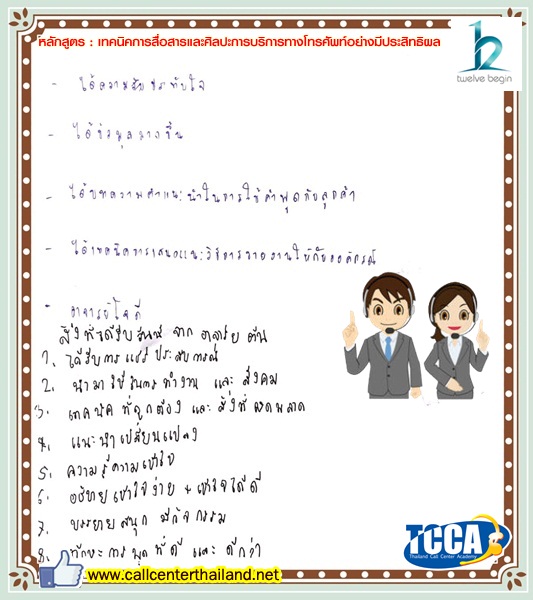 หลักสูตร : เทคนิคการสื่อสารและศิลปะการบริการทางโทรศัพท์อย่างมีประสิทธิผล
twelve begin
- ได้ความรับประทับใจ
- ได้ข้อมูลมากขึ้น
- ได้บทความคำแนะนำในการใช้คำพูดกับลูกค้า
- ได้เทคนิคการเสนอแนะวิธีการขายงานให้กับองค์กรณ์
- อาจารย์ใจดี
สิ่งที่ได้รับวันนี้ จาก อาจารย์ ต้น
1. ได้รับการแชร์ ประสบการณ์
2. นำมาใช้ในการทำงาน และ สังคม
3. เทคนิค ที่ถูกต้อง และ สิ่งที่ผิดพลาด
4. แนะนำเปลี่ยนแปลง
5. ความรู้ความเข้าใจ
6. อธิบายเข้าใจง่าย + เข้าใจได้ดี
7. บรรยายสนุก มีกิจกรรม
8. ทักษะการพูด ที่ดี และ ดีกว่า
TCCA
Thailand Call Center Academy
www.callcenterthailand.net